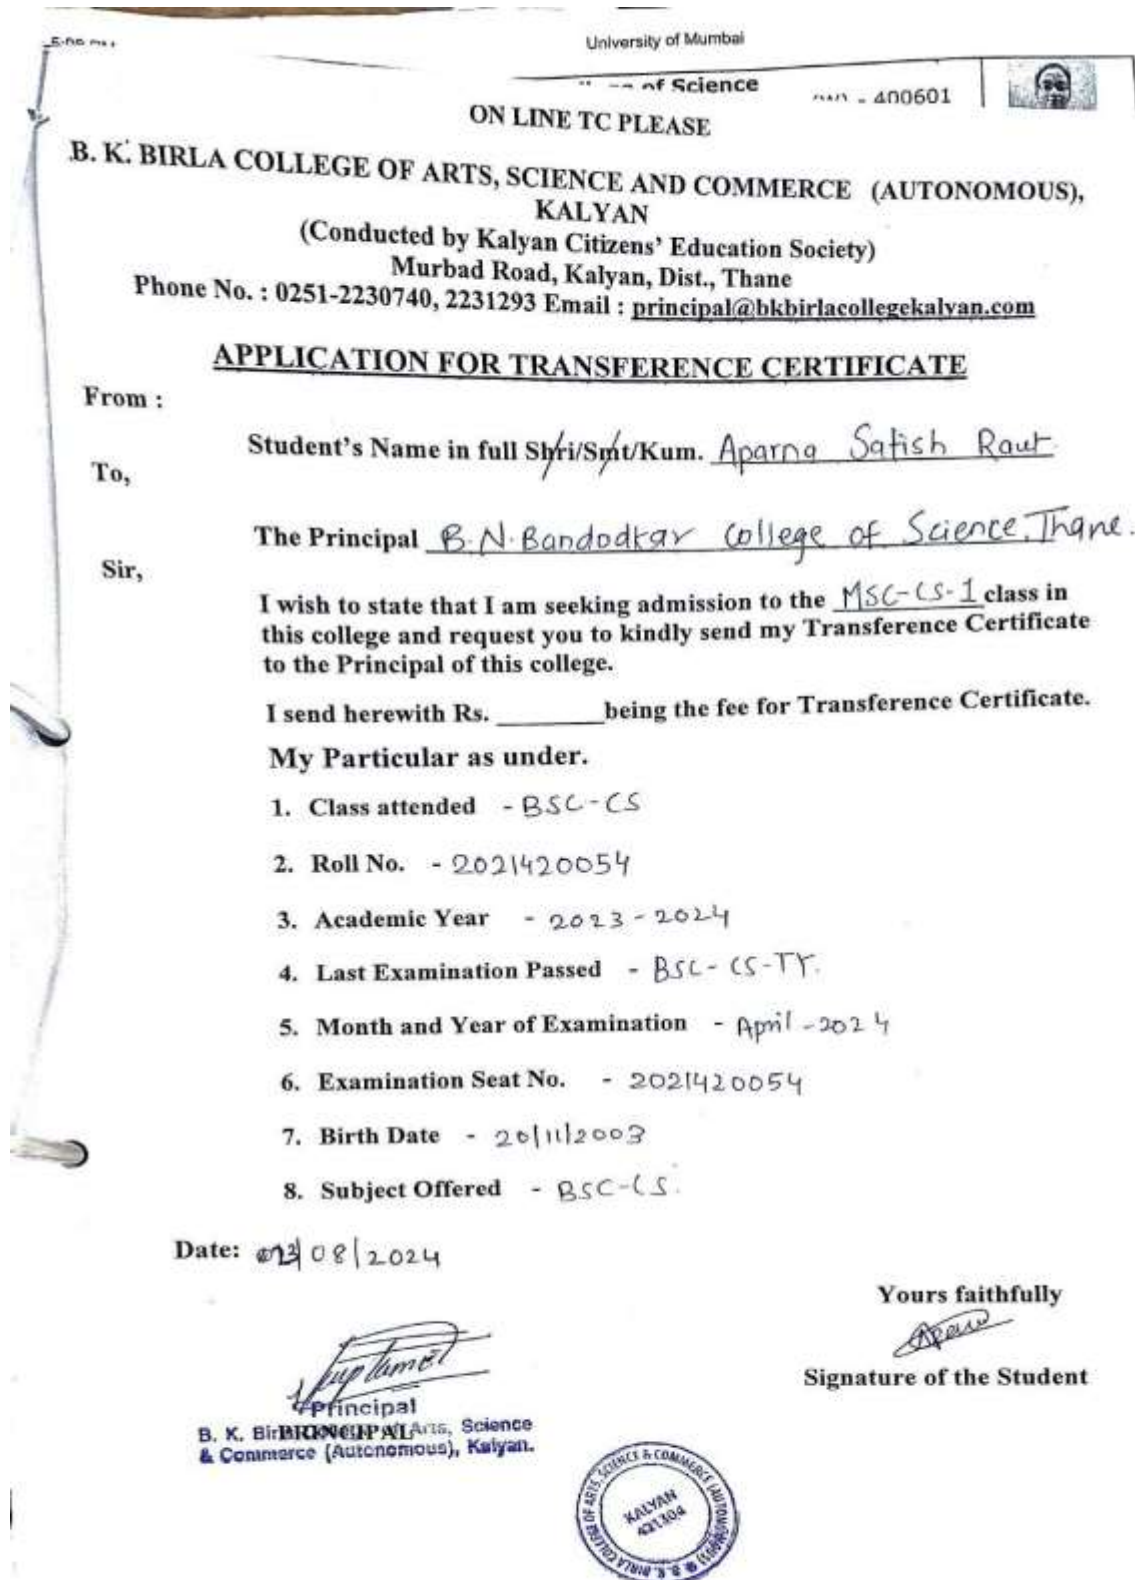 University of Mumbai
of Science
400601
ON LINE TC PLEASE
B. K. BIRLA COLLEGE OF ARTS, SCIENCE AND COMMERCE (AUTONOMOUS),
KALYAN
(Conducted by Kalyan Citizens' Education Society)
Murbad Road, Kalyan, Dist., Thane
Phone No. : 0251-2230740, 2231293 Email : principal@bkbirlacollegekalyan.com
APPLICATION FOR TRANSFERENCE CERTIFICATE
From :
Student's Name in full Shri/Smt/Kum. Aparna Satish Raut
To,
The Principal B.N.Bandodkar College of Science, Thane.
Sir,
I wish to state that I am seeking admission to the MSC-CS-1 class in
this college and request you to kindly send my Transference Certificate
to the Principal of this college.
I send herewith Rs. ________ being the fee for Transference Certificate.
My Particular as under.
1. Class attended - BSC-CS
2. Roll No. - 2021420054
3. Academic Year - 2023-2024
4. Last Examination Passed - BSC-CS-TY.
5. Month and Year of Examination - April-2024
6. Examination Seat No. - 2021420054
7. Birth Date - 20/11/2003
8. Subject Offered - BSC-CS.
Date: /08/2024
Yours faithfully
Signature of the Student
Principal
PRINCIPAL
B. K. Arts, Science
& Commerce (Autonomous), Kalyan.
B. K. BIRLA COLLEGE OF ARTS, SCIENCE & COMMERCE (AUTONOMOUS)
KALYAN
421304